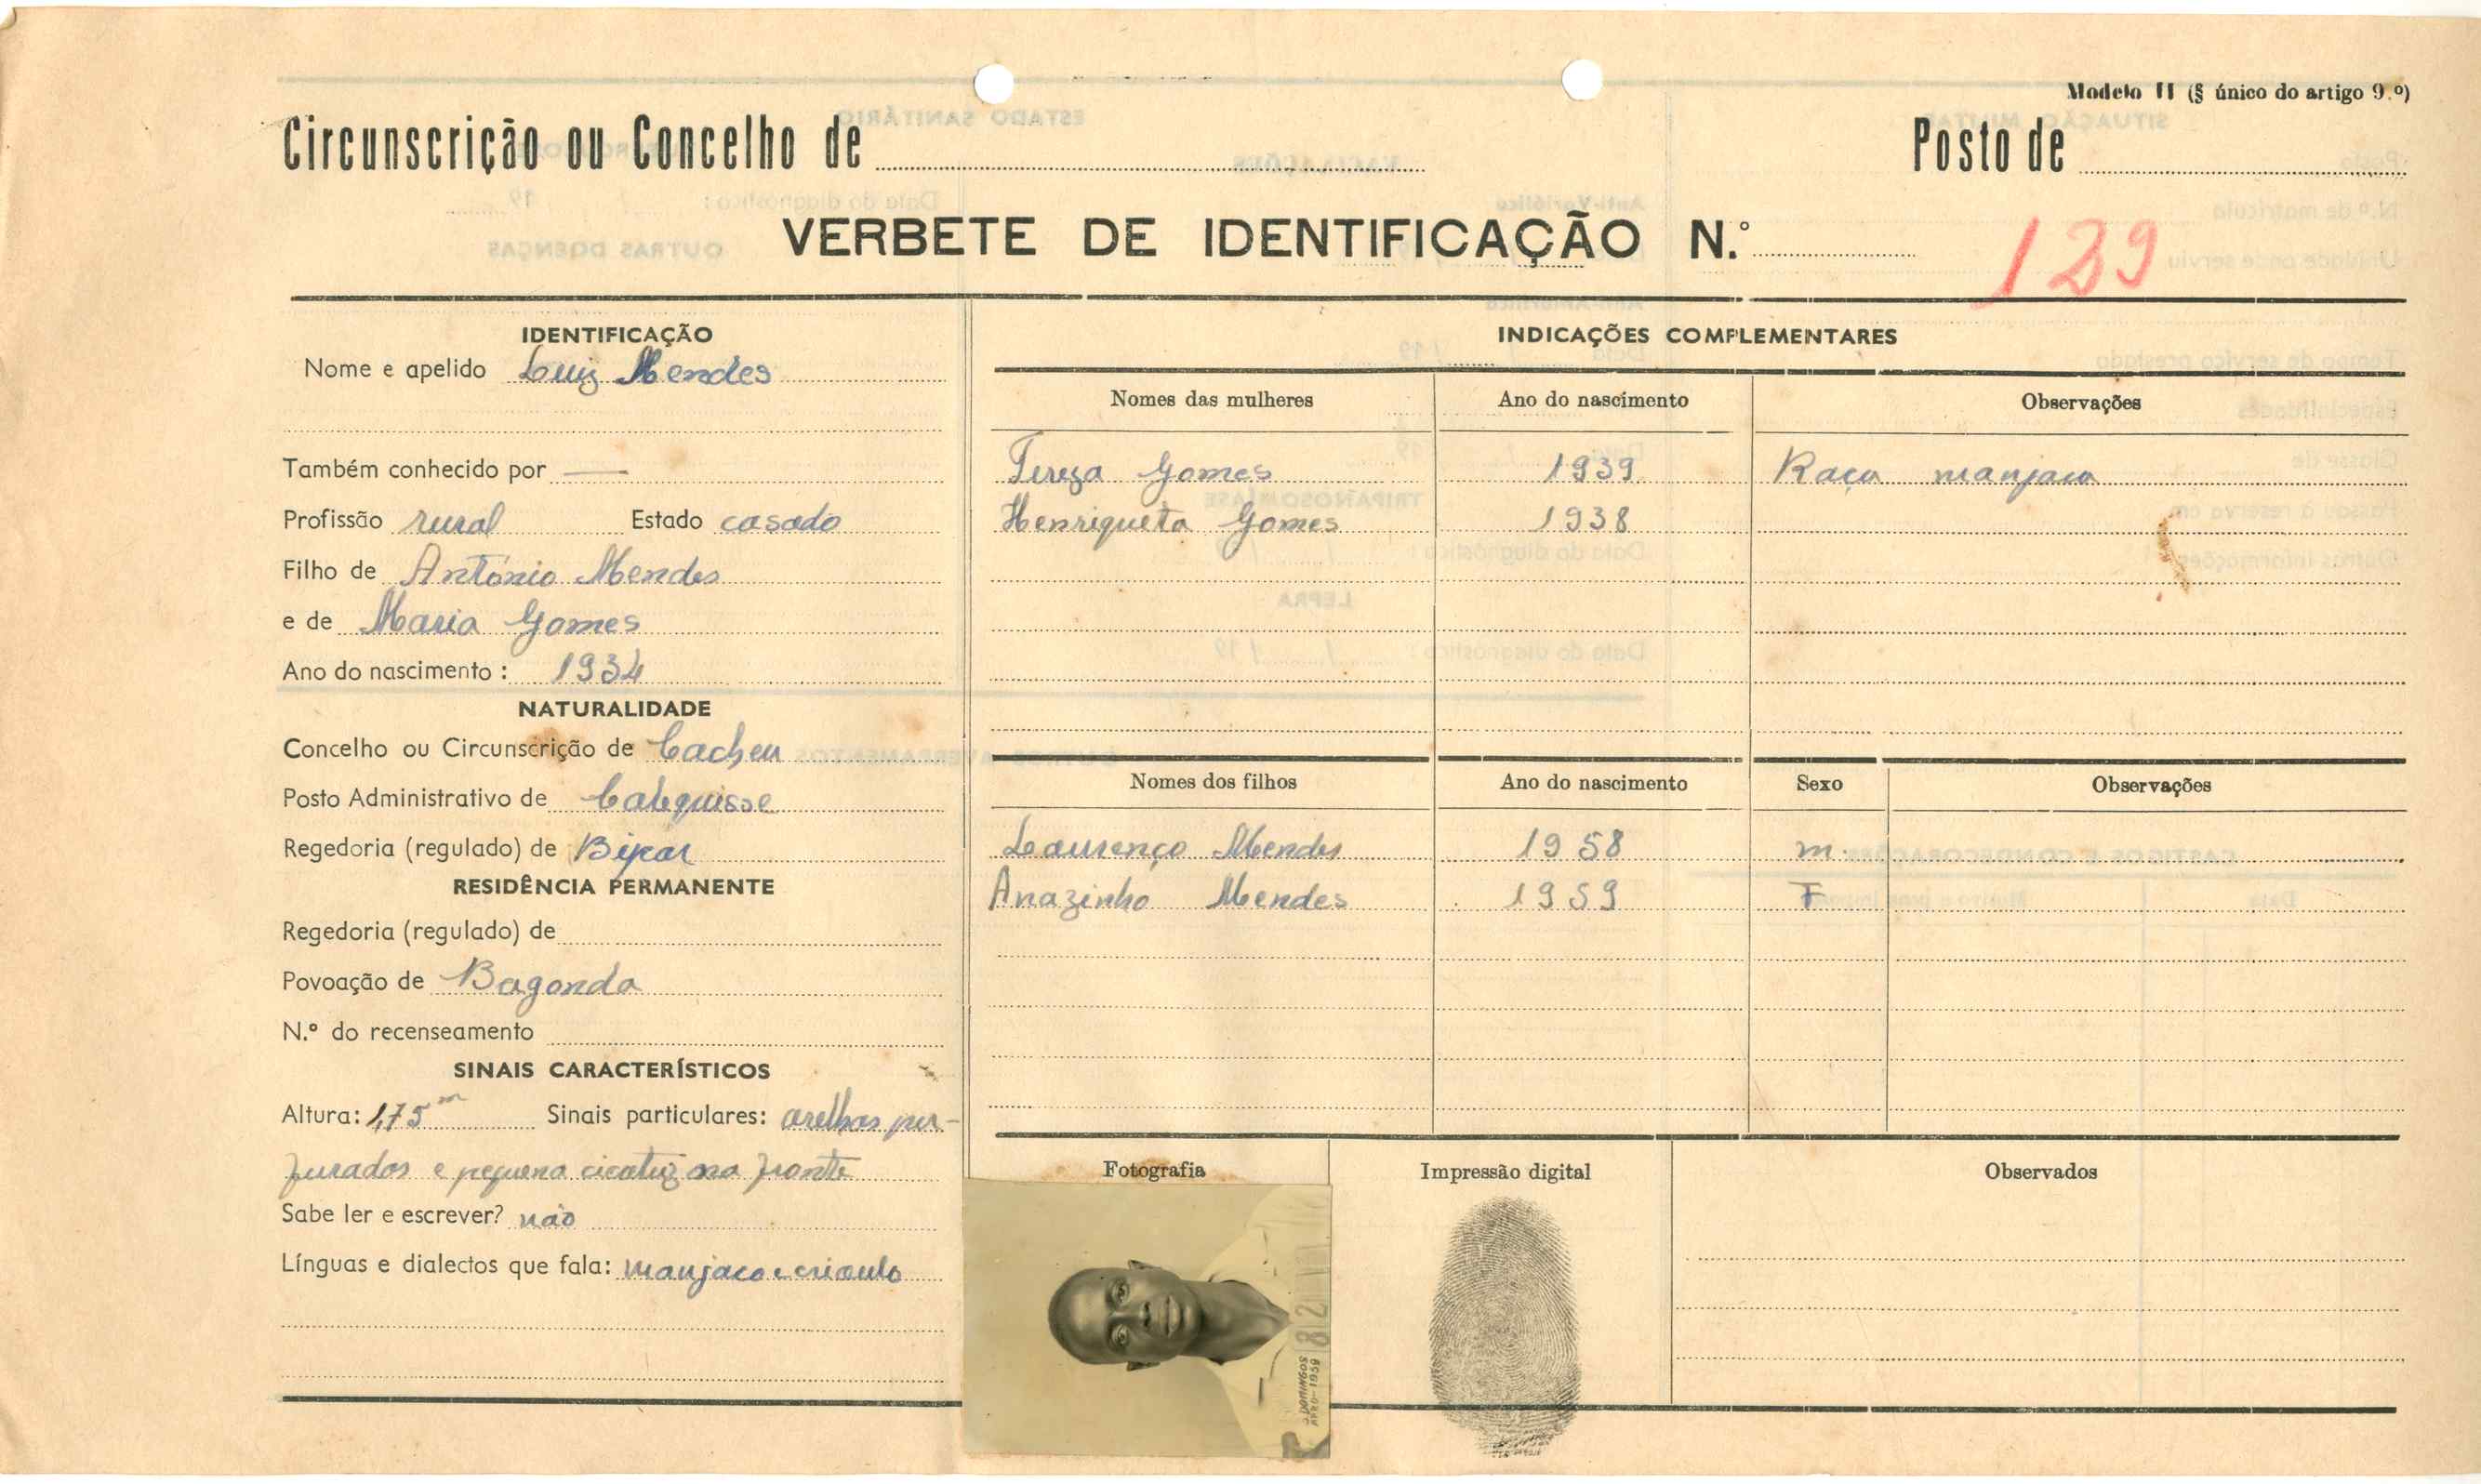 Modelo II (§ único do artigo 9.º)
Circunscrição ou Concelho de
Posto de
VERBETE DE IDENTIFICAÇÃO N.º
129
IDENTIFICAÇÃO
Nome e apelido Luiz Mendes
Também conhecido por —
Profissão rural Estado casado
Filho de António Mendes
e de Maria Gomes
Ano do nascimento: 1934
NATURALIDADE
Concelho ou Circunscrição de Cacheu
Posto Administrativo de Calequisse
Regedoria (regulado) de
RESIDÊNCIA PERMANENTE
Regedoria (regulado) de
Povoação de Bagonda
N.º do recenseamento
SINAIS CARACTERÍSTICOS
Altura: 1,75 m Sinais particulares: orelhas per-
furados e pequena cicatriz na fronte
Sabe ler e escrever? não
Línguas e dialectos que fala: manjaco e crioulo
INDICAÇÕES COMPLEMENTARES
Nomes das mulheres Ano do nascimento Observações
Tereza Gomes 1939 Raça manjaca
Henriqueta Gomes 1938
Nomes dos filhos Ano do nascimento Sexo Observações
Lourenço Mendes 1958 m.
Anazinha Mendes 1959 F
Fotografia Impressão digital Observados
821
DOMINGOS
1959